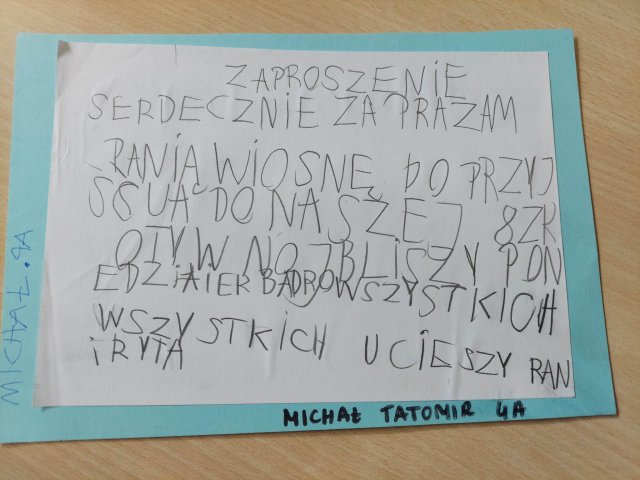 ZAPROSZENIE
SERDECZNIE ZAPRAZAM
RANIĄ WIOSNĘ DO PRZYJ
SCUA DO NASZEJ SZK
OTYW NOJBLISZY PON
EDZIAIEK BADJOWSZYSTKICH
WSZYSTKICH UCIESZY RAN
iRYTA
MICHAŁ TATOMIR 4A
MICHAŁ.4A